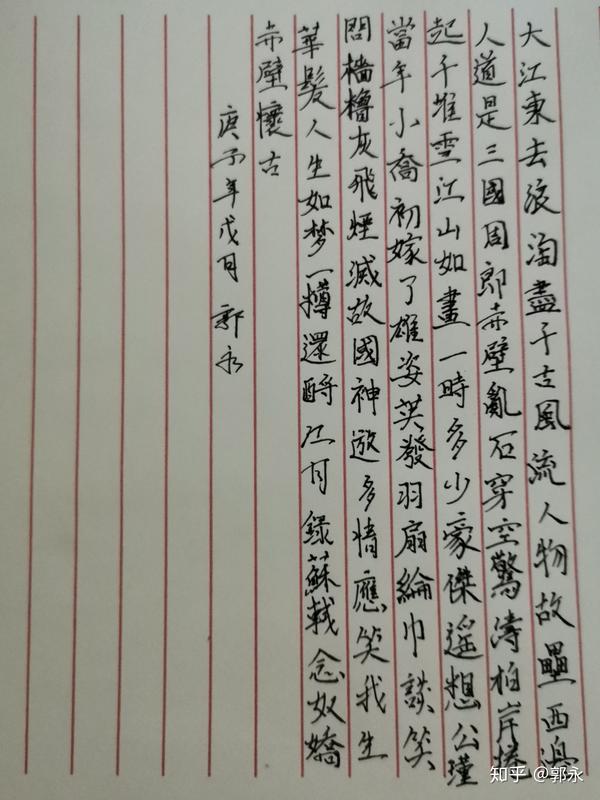 大江東去浪淘盡千古風流人物故壘西邊
人道是三國周郎赤壁亂石穿空驚濤拍岸捲
起千堆雪江山如畫一時多少豪傑遥想公瑾
當年小喬初嫁了雄姿英發羽扇綸巾談笑
間檣櫓灰飛煙滅故國神遊多情應笑我生
華髮人生如梦一樽還酹江月 錄蘇軾念奴嬌
赤壁懷古
庚子年戌月 郭永
知乎 @郭永